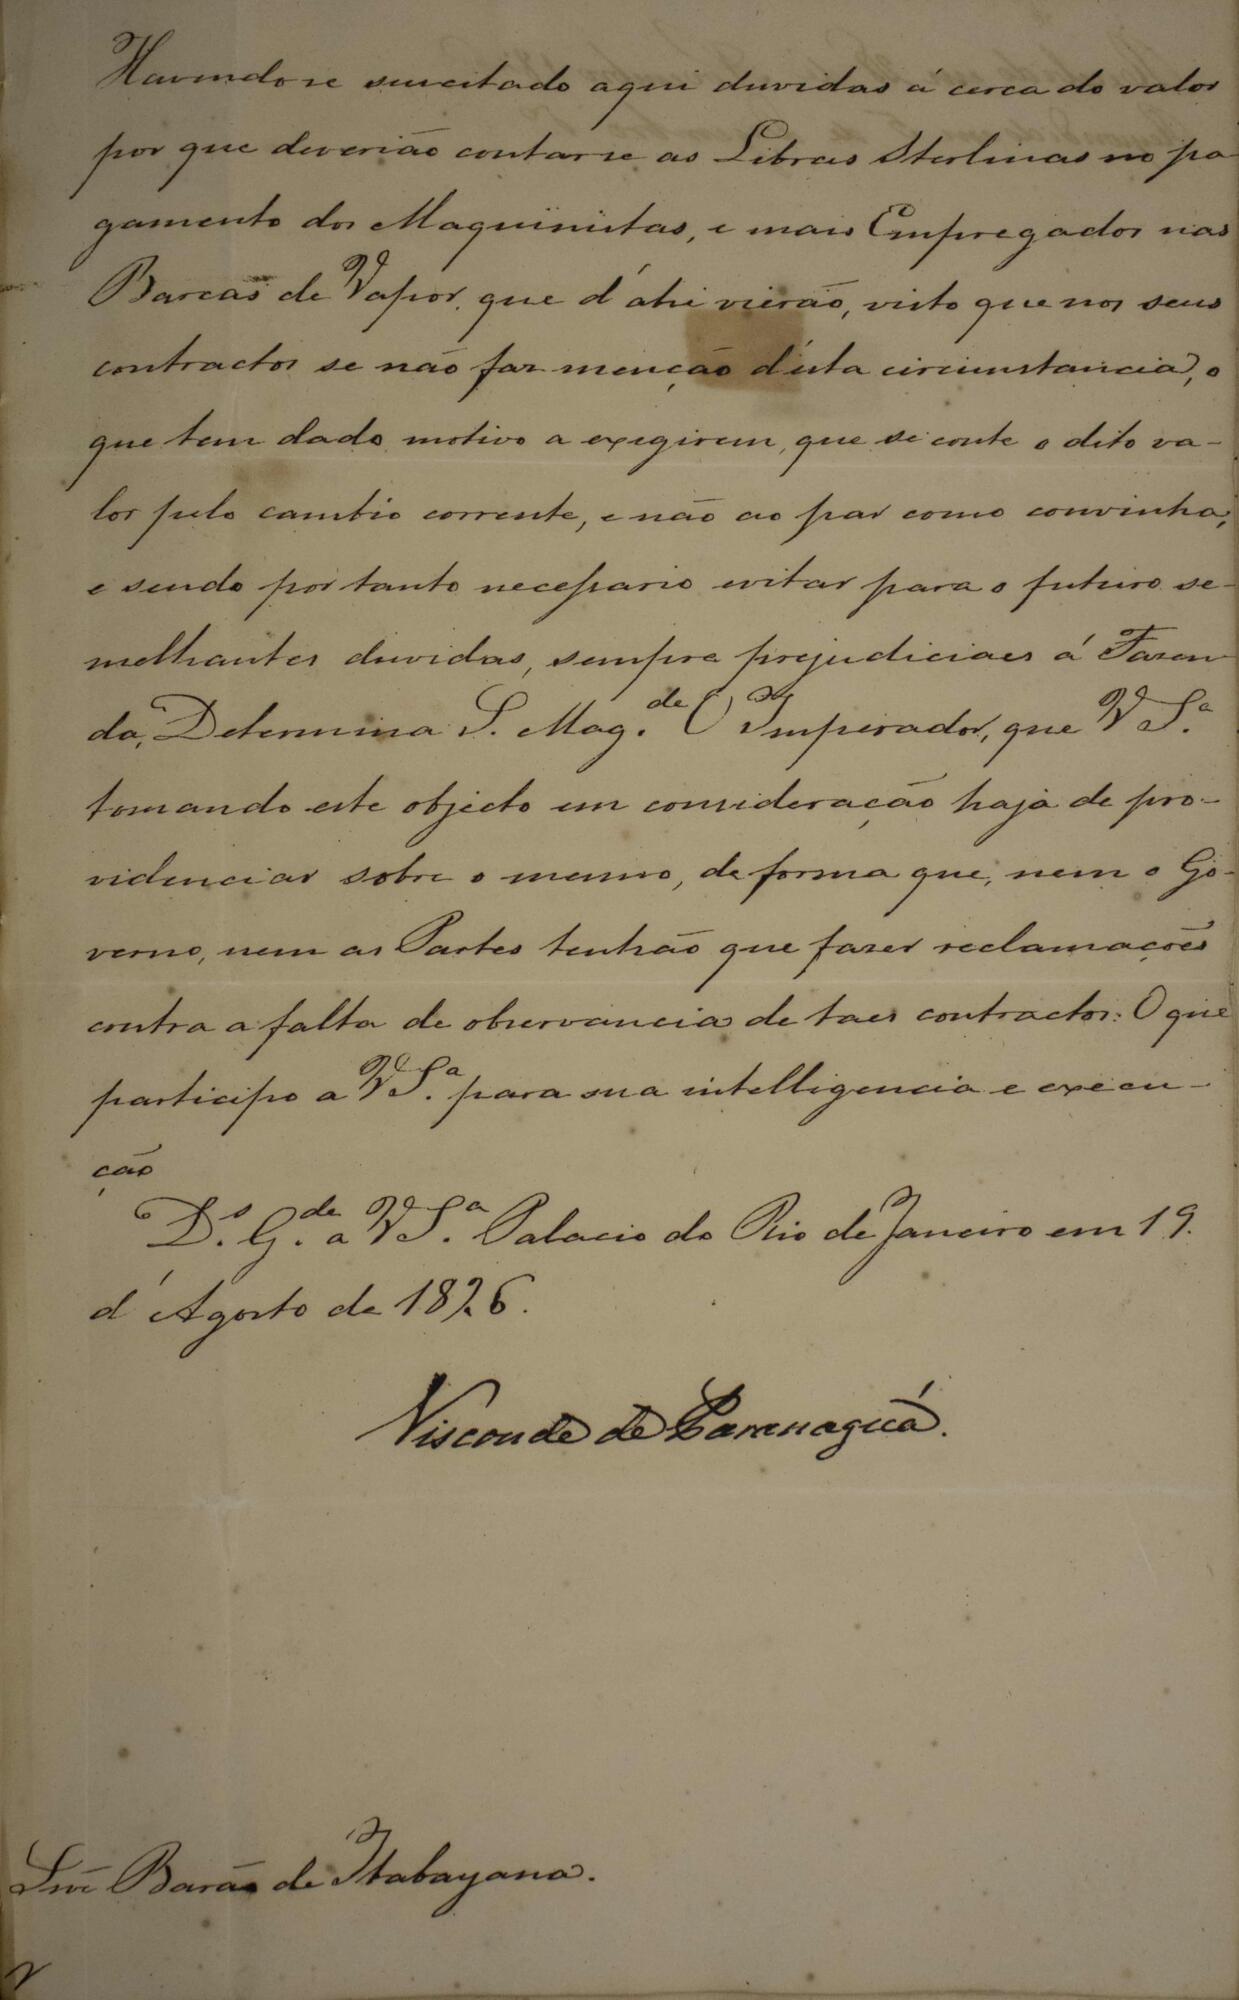 Havendose suscitado aqui duvidas á cerca do valor
por que deverião contarse as Libras Sterlinas no pa
gamento dos Maquinistas, e mais Empregados nas
Barcas de Vapor, que d'ahi vierão, visto que nos seus
contractos se não faz menção d'esta circumstancia, o
que tem dado motivo a exegirem, que se conte o dito va-
lor pelo cambio corrente, e não ao par como convinha,
e sendo por tanto necessario evitar para o futuro se-
melhantes duvidas, sempre prejudiciaes á Fazen
da, Determina S. Mag.de O Imperador, que V S.a
tomando este objecto em consideração haja de pro-
videnciar sobre o mesmo, de forma que, nem o Go-
verno, nem as Partes tenhão que fazer reclamações
contra a falta de observancia de taes contractos: O que
participo a V S.a para sua intelligencia e execu-
ção
D.s G.de a V S.a Palacio do Rio de Janeiro em 19.
d'Agosto de 1826.
Visconde de Paranaguá.
Snr̃ Barão de Itabayana.